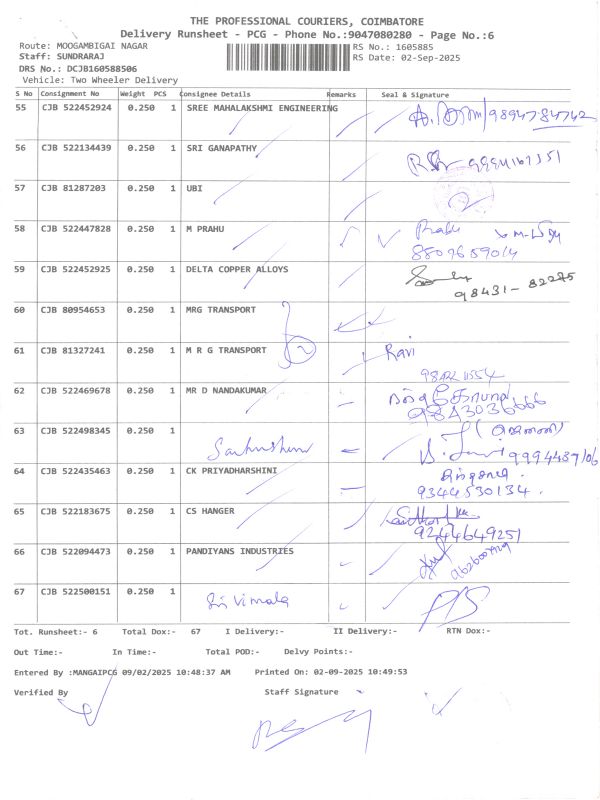 THE PROFESSIONAL COURIERS, COIMBATORE
Delivery Runsheet - PCG - Phone No.:9047080280 - Page No.:6
Route: MOOGAMBIGAI NAGAR RS No.: 1605885
Staff: SUNDRARAJ RS Date: 02-Sep-2025
DRS No.: DCJB160588506
Vehicle: Two Wheeler Delivery
S No Consignment No Weight PCS Consignee Details Remarks Seal & Signature
55 CJB 522452924 0.250 1 SREE MAHALAKSHMI ENGINEERING 9894784742
56 CJB 522134439 0.250 1 SRI GANAPATHY
57 CJB 81287203 0.250 1 UBI
58 CJB 522447828 0.250 1 M PRAHU Prabu
8807659014
59 CJB 522452925 0.250 1 DELTA COPPER ALLOYS
98431-82275
60 CJB 80954653 0.250 1 MRG TRANSPORT
61 CJB 81327241 0.250 1 M R G TRANSPORT Ravi
62 CJB 522469678 0.250 1 MR D NANDAKUMAR
9843036666
63 CJB 522498345 0.250 1
9994489106
64 CJB 522435463 0.250 1 CK PRIYADHARSHINI
9344530134.
65 CJB 522183675 0.250 1 CS HANGER
9244649251
66 CJB 522094473 0.250 1 PANDIYANS INDUSTRIES
67 CJB 522500151 0.250 1 Sri Vimala
Tot. Runsheet:- 6 Total Dox:- 67 I Delivery:- II Delivery:- RTN Dox:-
Out Time:- In Time:- Total POD:- Delvy Points:-
Entered By :MANGAIPCG 09/02/2025 10:48:37 AM Printed On: 02-09-2025 10:49:53
Verified By Staff Signature